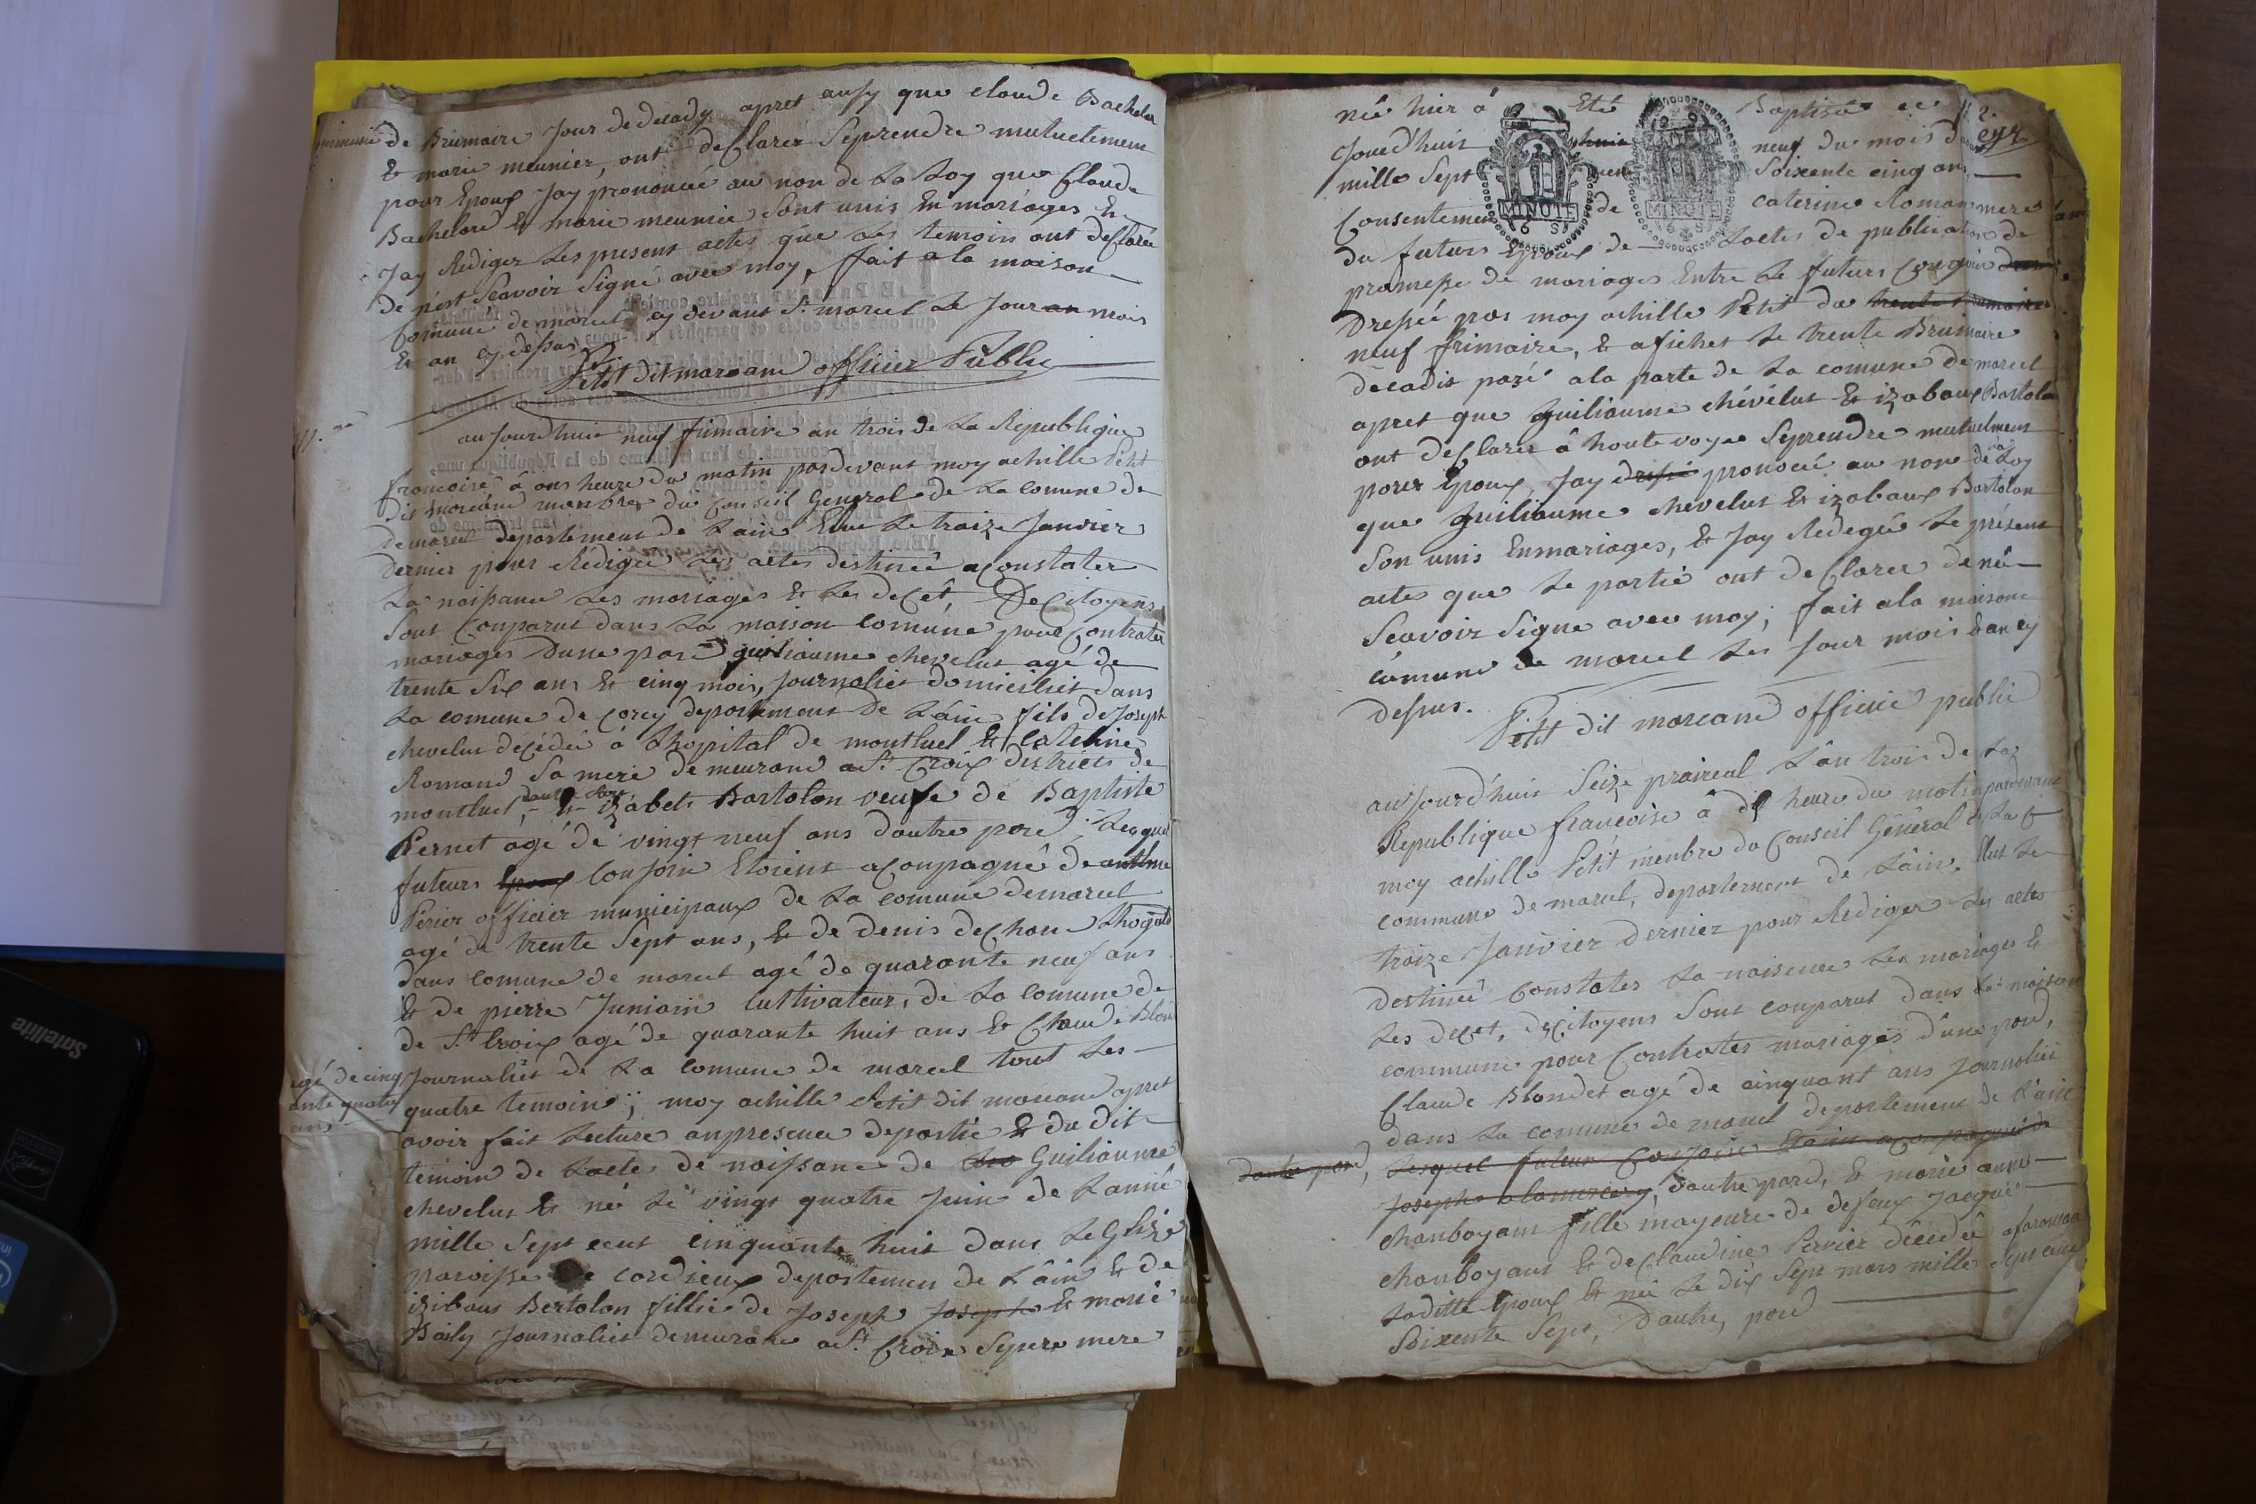 de Brumaire Jour de decady apret ausy que claude Bachelar
& marie meunier, ont declarer Seprendre mutuelement
pour Epoux Jay prononcé au non de La Loy que Claude
Bachelard & marie meunier Sont unis En mariages &
Jay Rediger Les present actes que Les temoin ont declarer
de n'est Scavoir Signé avec moy, fait a la maison
Comune de marcel cy devant St. marcel Le Jour an mois
& an cy dessus
Petit dit marcand officier Public
aujourdhuit neuf frimaire an trois de La Republique
francoise à ons heure du matin pardevant moy achille Petit
dit marcand membres du Conseil General de La comune de
de marcel departement de Lain Elue Le traize Janvier
dernier pour Rédiger Les actes destineé aconstater
La naissance Les mariages & Les decét, De Citoyens
Sont Conparut dans La maison Comune pour Contrater
mariages Dune pard guiliaume chevelut agé de
trente Six ans & cinq mois, Journalier domicilliét dans
La comune de Corcy departement De Láin fils de Joseph
chevelut décédeé à Lhopital de montluel & Caterine
Romand Sa mere demeurand a St. Croix districts de
dautre part
montluel, & izabets Bartolon veufe de Baptiste
Pernet agé de vingt neuf ans dautre pard, Lesquel
futeurs Epoux Conjoin Etoient aconpagné de
Périer officier municipaux de La comune de marcel
agé de trente Sept ans, & de denis dechan
dans comune de marcel agé de quarante neuf ans
& de pierre Juniain Cultivateur, de La comune de
de St. Croix agé de quarante huit ans & Claude Blon
agé de cinq
ante quatre
ans
Journaliét de La comune de marcel tout Les
quatre temoin; moy achille Petit dit marcand apret
avoir fait Lecture anpresence departie & du dit
temoin de Lacte de naissance de Guiliaume
chevelut & né Le vingt quatre Juin de Lanné
mille Sept cent cinquante huit dans LeGlize
paroisse de cordieux departement de Láin & de
izibaus Bertolon fillie de Joseph Joseph & marié
Baily Journaliét demurant a St. Croix Sepere mere
née hier à Eté Baptisée ce
Jourd'huit neuf du mois de
mille Sept Soixente cinq ans
Consentement de caterine Roman mere
du futurs Epoux de Lactes de publication de
promesse de mariages Entre Le futurs Conjoin
Dressée par moy achille Petit du trente brumaire
neuf frimaire, & aficher Le trente Brumaire
decadit pasé a la porte de La comune de marcel
apret que Guiliaume chévélut & izabaux Bartolon
ont declarer à haute voyee Seprendre mutuelment
pour Epoux, Jay dressé pronocé au non de La Loy
que Guiliaume chevelut & izabaux Bartolon
Son unis Enmariages, & Jay Redegée Le présent
acte que Le partie ont declarer de né
Scavoir Signe avec moy; fait a la maison
comune de marcel Les Jour mois & an cy
dessus.
Petit dit marcand officié public
aujourd'huit Seize praireal Lán trois de La
Republique francoise à dix heure du matin pardevant
moy achille Petit menbre du Conseil Général de La
commune de marcel, departement de Láin. Elut Le
traize Janvier dernier pour Rediger Les actes
destineé Constater La naisence Les mariages &
Les decet, deCitoyens Sont conparut dans La maison
commune pour Contrater mariages d'une pard,
Claude Blondet agé de cinquant ans Journaliér
dans La comune de marcel departement de Láin
dautre pard, Lesquel futeur Conjoin Etoin aconpagné de
Joseph, dautre pard, & marie anne
chanboyant fille mayeure de defeux Jacque
chanboyant & de Claudine Perrier décédé
Laditte Epoux & née Le dix Sept mars mille Sept cent
Soixente Sept, Dautre, pard
MINUTE
6 S
MINUTE
6 S
Satellite